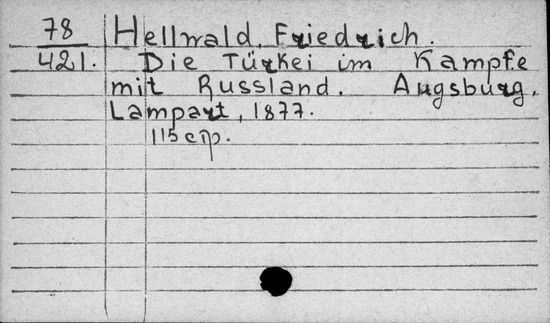 78 Hellwald Friedrich.
421. Die Türkei im Kampfe
mit Russland. Augsburg,
Lampart, 1877.
115 стр.